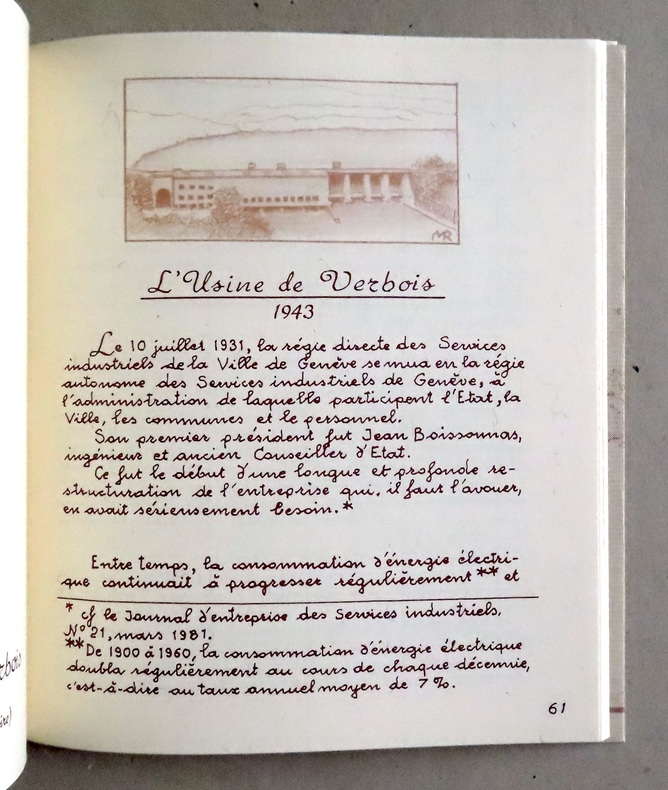 MR
L'Usine de Verbois
1943
Le 10 juillet 1931, la régie directe des Services
industriels de la Ville de Genève se mua en la régie
autonome des Services industriels de Genève, à
l'administration de laquelle participent l'Etat, la
Ville, les communes et le personnel.
Son premier président fut Jean Boissonnas,
ingénieur et ancien Conseiller d'Etat.
Ce fut le début d'une longue et profonde re-
structuration de l'entreprise qui, il faut l'avouer,
en avait sérieusement besoin.*
Entre temps, la consommation d'énergie électri-
que continuait à progresser régulièrement** et
* cf le Journal d'entreprise des Services industriels,
N° 21, mars 1981.
**De 1900 à 1960, la consommation d'énergie électrique
doubla régulièrement au cours de chaque décennie,
c'est-à-dire au taux annuel moyen de 7 %.
61